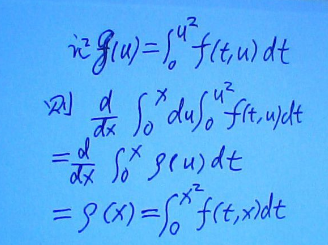 记 g(u)=∫₀^{u²} f(t,u)dt
则 d/dx ∫₀^x du∫₀^{u²} f(t,u)dt
= d/dx ∫₀^x g(u)dt
= g(x)=∫₀^{x²} f(t,x)dt